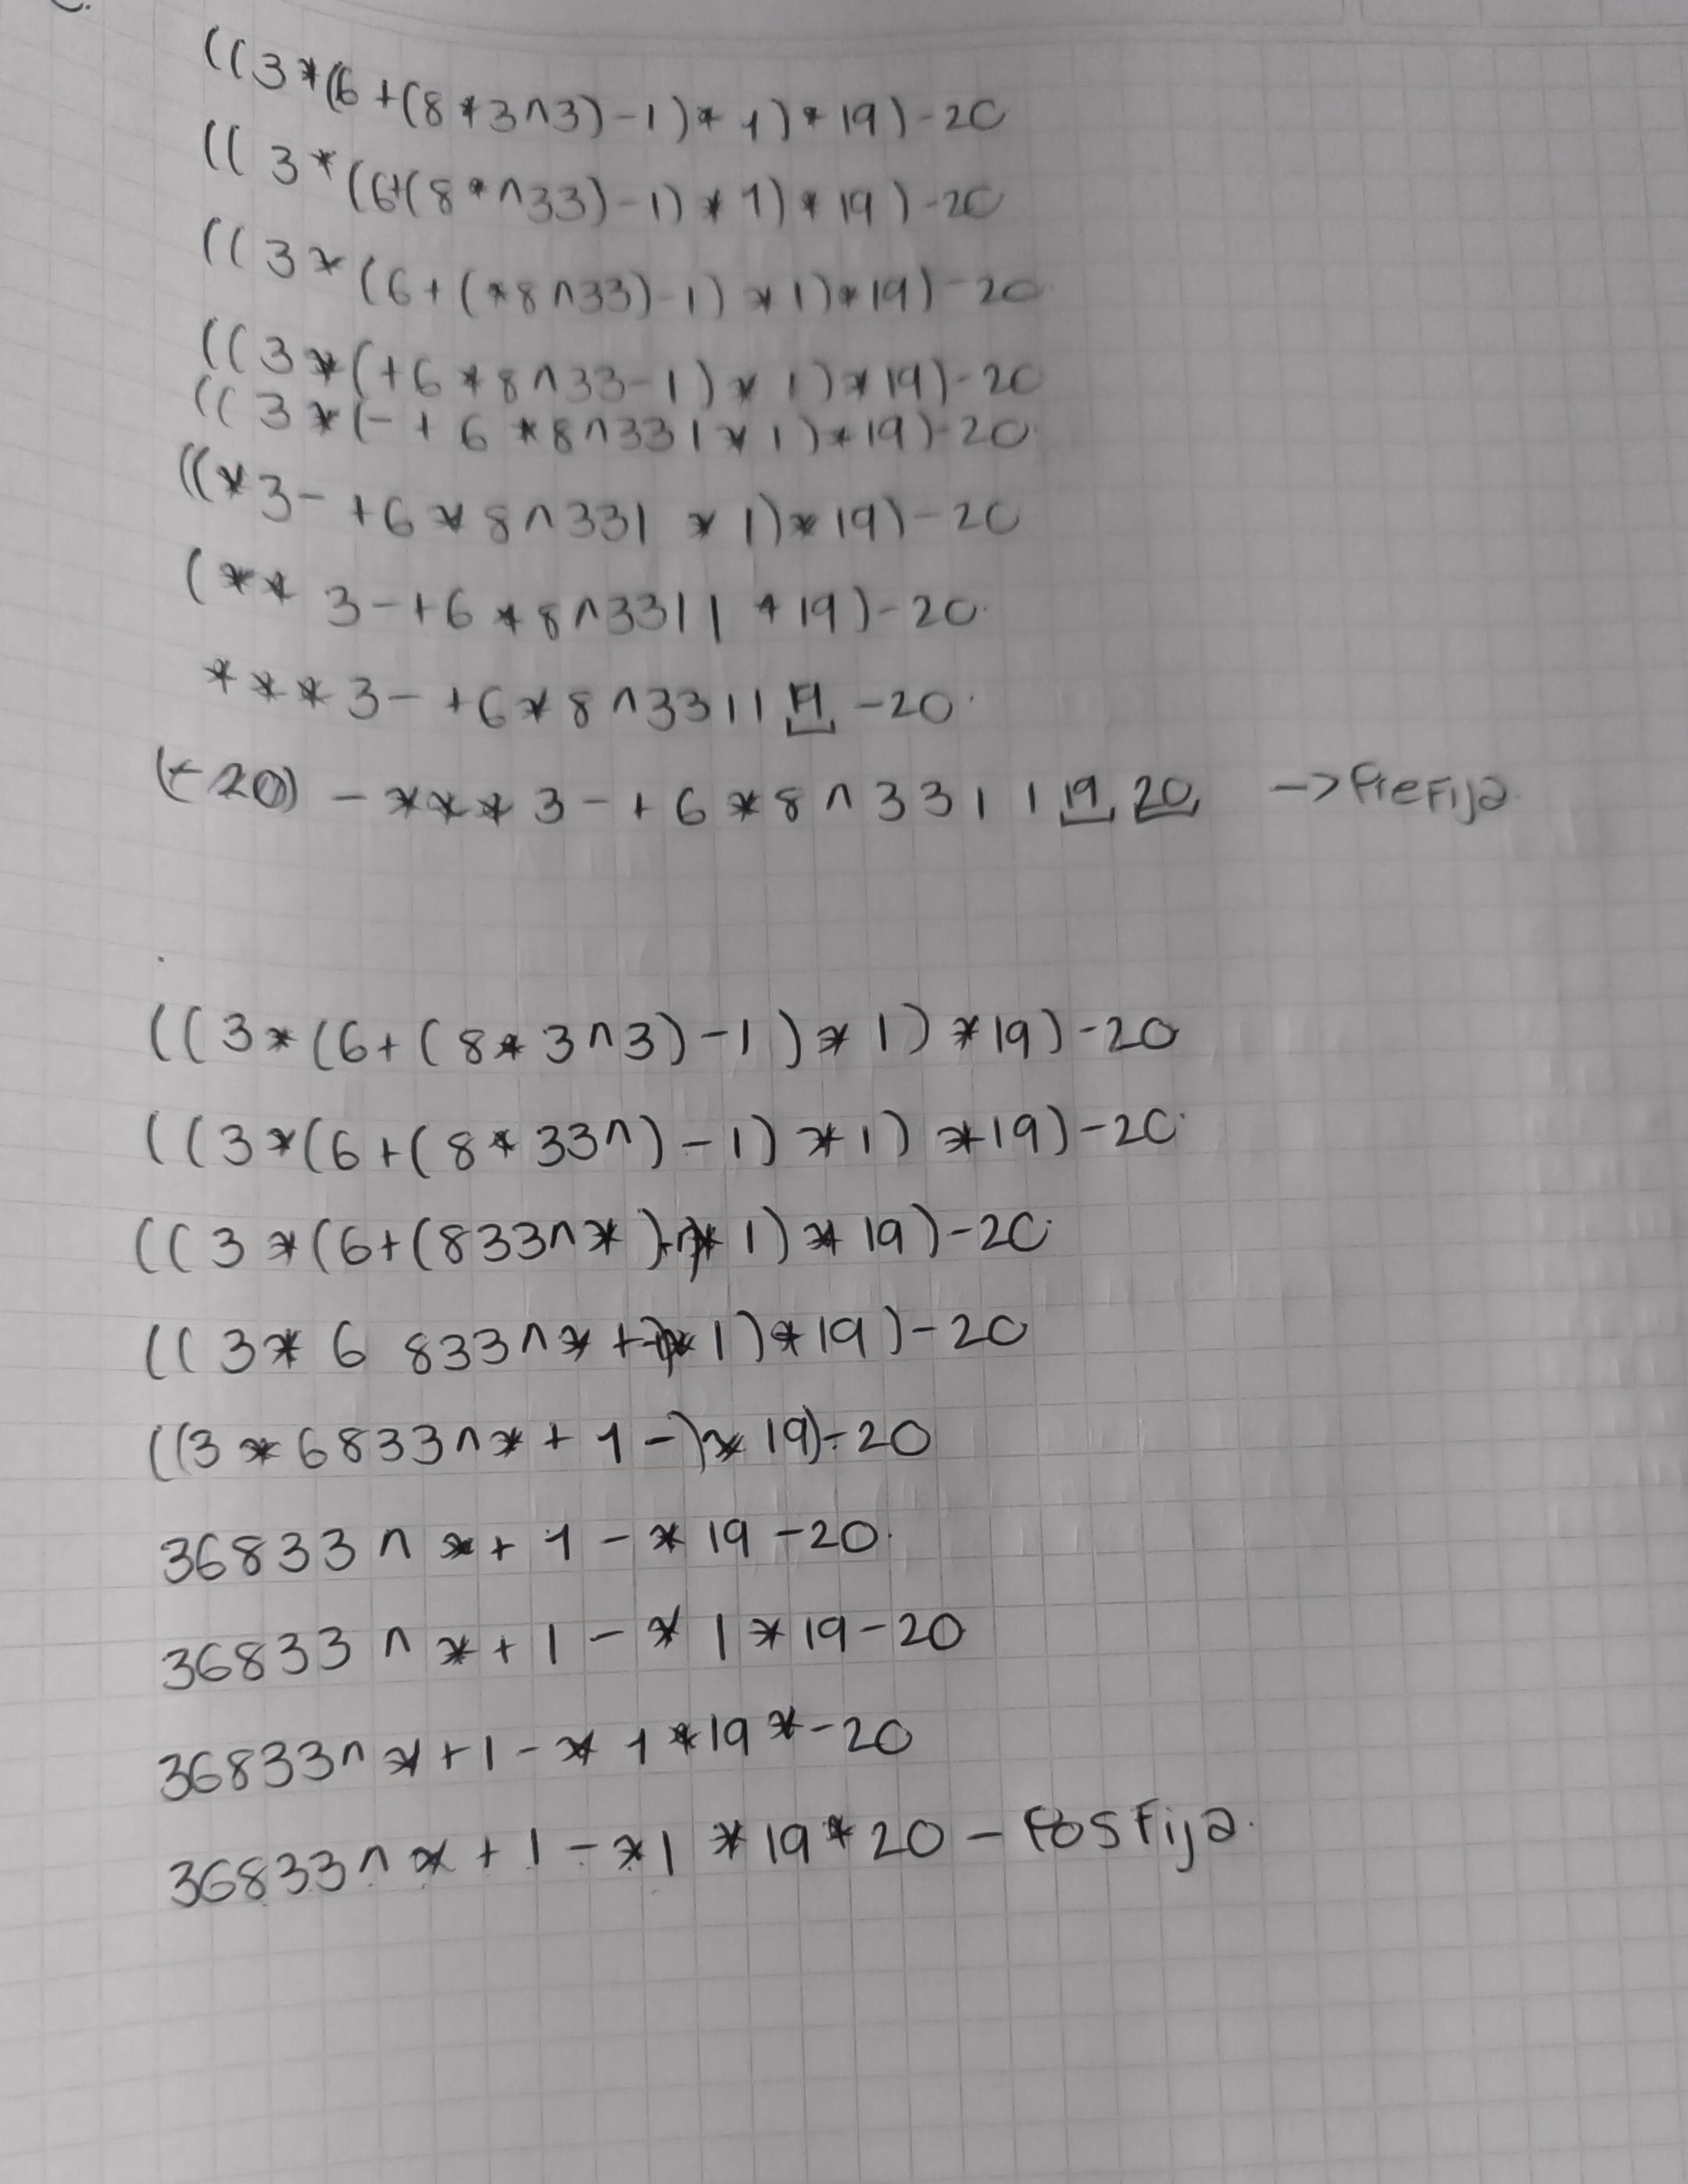 ((3*(6+(8*3^3)-1)*1)*19)-20
((3*(6+(8*^33)-1)*1)*19)-20
((3*(6+(*8^33)-1)*1)*19)-20
((3*(+6*8^33-1)*1)*19)-20
((3*(-+6*8^331*1)*19)-20
((*3-+6*8^331*1)*19)-20
(**3-+6*8^3311*19)-20
***3-+6*8^331119-20
(-20) -***3-+6*8^33111920 -> Prefija
((3*(6+(8*3^3)-1)*1)*19)-20
((3*(6+(8*33^)-1)*1)*19)-20
((3*(6+(833^*)*1)*19)-20
((3*6 833^*+*1)*19)-20
((3*6833^*+1-)*19)-20
36833^*+1-*19-20
36833^*+1-*1*19-20
36833^*+1-*1*19*-20
36833^*+1-*1*19*20- Posfija.